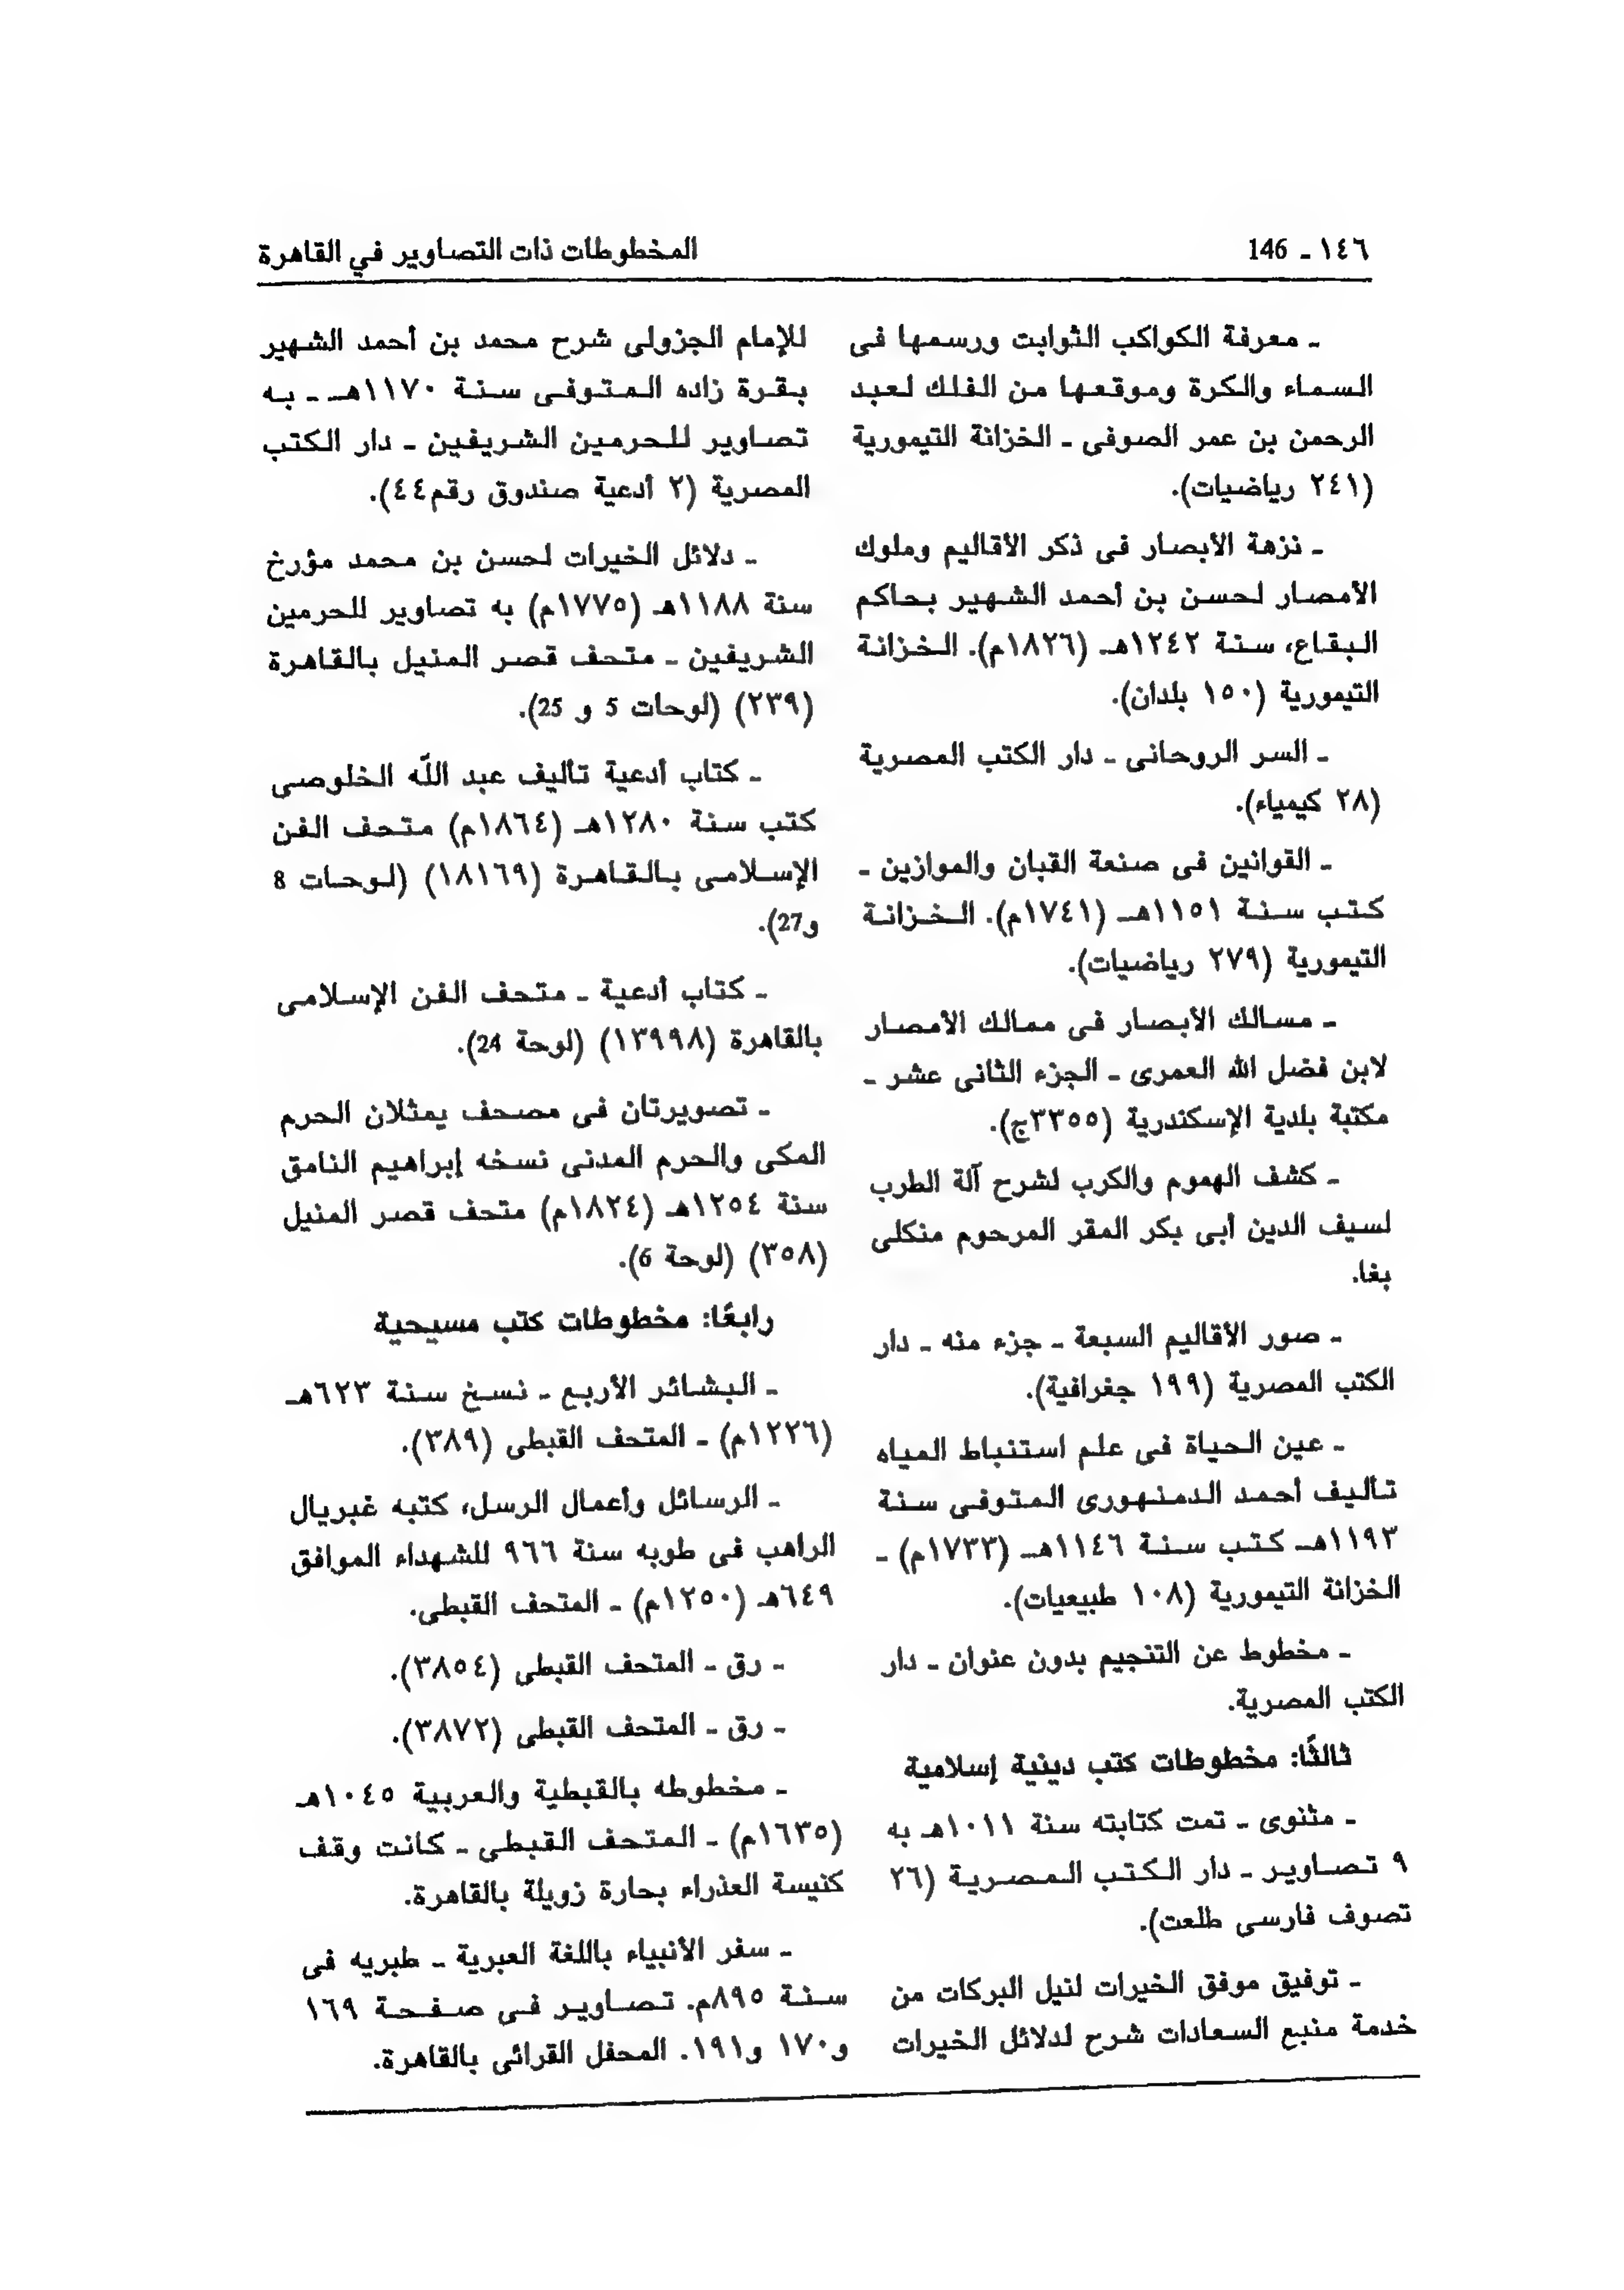 ١٤٦ - 146
المخطوطات ذات التصاوير في القاهرة
- معرفة الكواكب الثوابت ورسمها فى
السماء والكرة وموقعها من الفلك لعبد
الرحمن بن عمر الصوفى - الخزانة التيمورية
(٢٤١ رياضيات).
- نزهة الأبصار فى ذكر الأقاليم وملوك
الأمصار لحسن بن أحمد الشهير بحاكم
البقاع، سنة ١٢٤٢هـ (١٨٢٦م). الخزانة
التيمورية (١٥٠ بلدان).
- السر الروحانى - دار الكتب المصرية
(٢٨ كيمياء).
- القوانين فى صنعة القبان والموازين -
كتب سنة ١١٥١هـ (١٧٤١م). الخزانة
التيمورية (٢٧٩ رياضيات).
- مسالك الأبصار فى ممالك الأمصار
لابن فضل الله العمرى - الجزء الثانى عشر -
مكتبة بلدية الإسكندرية (٣٣٥٥ج).
- كشف الهموم والكرب لشرح آلة الطرب
لسيف الدين أبى بكر المقر المرحوم منكلى
بغا.
- صور الأقاليم السبعة - جزء منه - دار
الكتب المصرية (١٩٩ جغرافية).
- عين الحياة فى علم استنباط المياه
تأليف أحمد الدمنهورى المتوفى سنة
١١٩٣هـ كتب سنة ١١٤٦هـ (١٧٣٣م) -
الخزانة التيمورية (١٠٨ طبيعيات).
- مخطوط عن التنجيم بدون عنوان - دار
الكتب المصرية.
ثالثًا: مخطوطات كتب دينية إسلامية
- مثنوى - تمت كتابته سنة ١٠١١هـ به
٩ تصاوير - دار الكتب المصرية (٢٦
تصوف فارسى طلعت).
- توفيق موفق الخيرات لنيل البركات من
خدمة منبع السعادات شرح لدلائل الخيرات
للإمام الجزولى شرح محمد بن أحمد الشهير
بقرة زاده المتوفى سنة ١١٧٠هـ - به
تصاوير للحرمين الشريفين - دار الكتب
المصرية (٢ أدعية صندوق رقم٤٤).
- دلائل الخيرات لحسن بن محمد مؤرخ
سنة ١١٨٨هـ (١٧٧٥م) به تصاوير للحرمين
الشريفين - متحف قصر المنيل بالقاهرة
(٢٣٩) (لوحات 5 و 25).
- كتاب أدعية تأليف عبد اللّه الخلوصى
كتب سنة ١٢٨٠هـ (١٨٦٤م) متحف الفن
الإسلامى بالقاهرة (١٨١٦٩) (لوحات 8
و27).
- كتاب أدعية - متحف الفن الإسلامى
بالقاهرة (١٣٩٩٨) (لوحة 24).
- تصويرتان فى مصحف يمثلان الحرم
المكى والحرم المدنى نسخه إبراهيم النامق
سنة ١٢٥٤هـ (١٨٢٤م) متحف قصر المنيل
(٣٥٨) (لوحة 6).
رابعًا: مخطوطات كتب مسيحية
- البشائر الأربع - نسخ سنة ٦٢٣هـ
(١٢٢٦م) - المتحف القبطى (٣٨٩).
- الرسائل وأعمال الرسل، كتبه غبريال
الراهب فى طوبه سنة ٩٦٦ للشهداء الموافق
٦٤٩هـ (١٢٥٠م) - المتحف القبطى.
- رق - المتحف القبطى (٣٨٥٤).
- رق - المتحف القبطى (٣٨٧٢).
- مخطوطه بالقبطية والعربية ١٠٤٥هـ
(١٦٣٥م) - المتحف القبطى - كانت وقف
كنيسة العذراء بحارة زويلة بالقاهرة.
- سفر الأنبياء باللغة العبرية - طبريه فى
سنة ٨٩٥م. تصاوير فى صفحة ١٦٩
و١٧٠ و١٩١. المحفل القرائى بالقاهرة.